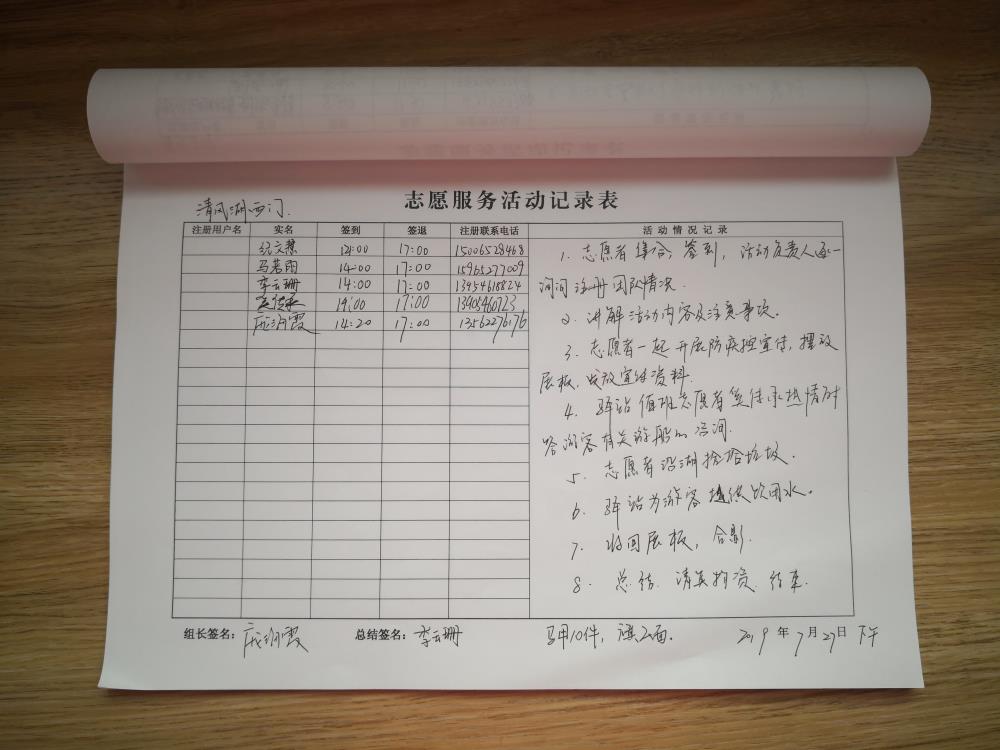 志愿服务活动记录表
清风湖西门
注册用户名 实名 签到 签退 注册联系电话 活动情况记录
纪文慧 14:00 17:00 15006528468
马若雨 14:00 17:00 15965277009
李云珊 14:00 17:00 13954618824
14:00 17:00 13905460723
庞润霞 14:20 17:00 13562276176
1. 志愿者集合,签到,活动负责人逐一
询问注册团队情况.
2. 讲解活动内容及注意事项。
3. 志愿者一起开展防疾控宣传,摆放
展板,发放宣传资料.
4. 驿站值班志愿者 热情对
答游客有关游船的咨询.
5. 志愿者沿湖捡拾垃圾.
6. 驿站为游客提供饮用水。
7. 收回展板,合影.
8. 总结.清点物资.结束.
组长签名:庞润霞 总结签名:李云珊 马甲10件,旗2面. 2019年7月27日下午